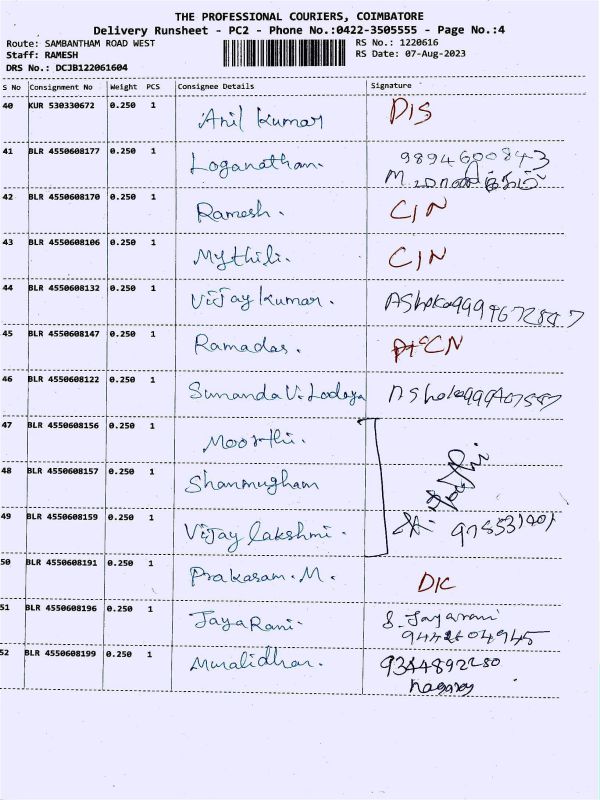 THE PROFESSIONAL COURIERS, COIMBATORE
Delivery Runsheet - PC2 - Phone No.:0422-3505555 - Page No.:4
Route: SAMBANTHAM ROAD WEST RS No.: 1220616
Staff: RAMESH RS Date: 07-Aug-2023
DRS No.: DCJB122061604
S No Consignment No Weight PCS Consignee Details Signature
40 KUR 530330672 0.250 1 Anil Kumar D/S
41 BLR 4550608177 0.250 1 Loganathan. 9894600843
M.
42 BLR 4550608170 0.250 1 Ramesh. C/N
43 BLR 4550608106 0.250 1 Mythili. C/N
44 BLR 4550608132 0.250 1 Vijay Kumar. Ashoka
45 BLR 4550608147 0.250 1 Ramadas. CN
46 BLR 4550608122 0.250 1 Sunanda V. Lodaya Ashoka
47 BLR 4550608156 0.250 1 Moorthi.
48 BLR 4550608157 0.250 1 Shanmugham
49 BLR 4550608159 0.250 1 Vijay lakshmi.
50 BLR 4550608191 0.250 1 Prakasam. M. DC
51 BLR 4550608196 0.250 1 Jaya Rani. S. Jayarani
52 BLR 4550608199 0.250 1 Muralidhar. 9344892280